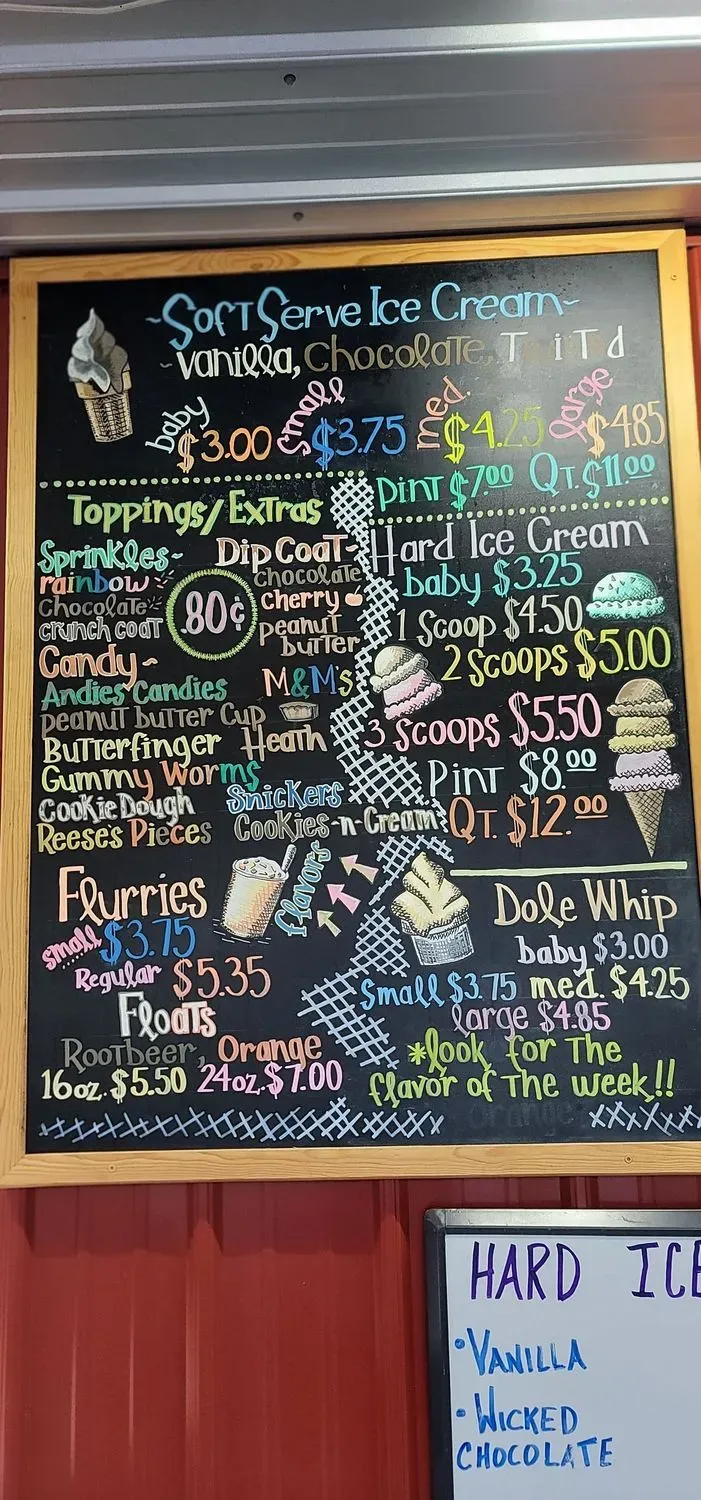 ~Soft Serve Ice Cream~
~vanilla, Chocolate,
baby $3.00 small $3.75 med. $4.25 large $4.85
Pint $7.00 Qt. $11.00
Toppings/Extras
Sprinkles~
rainbow
Chocolate
crunch coat
.80¢
Dip Coat~
chocolate
cherry
peanut
butter
Candy~
Andies Candies M&M's
peanut butter Cup
Butterfinger Heath
Gummy Worms
Cookie Dough Snickers
Reeses Pieces Cookies-n-Cream
Flurries
flavors
small $3.75
Regular $5.35
Floats
Rootbeer, Orange
16oz. $5.50 24oz. $7.00
Hard Ice Cream
baby $3.25
1 Scoop $4.50
2 Scoops $5.00
3 Scoops $5.50
Pint $8.00
Qt. $12.00
Dole Whip
baby $3.00
Small $3.75 med. $4.25
large $4.85
*look for The
flavor of The week!!
orange
HARD ICE
•VANILLA
•WICKED
CHOCOLATE